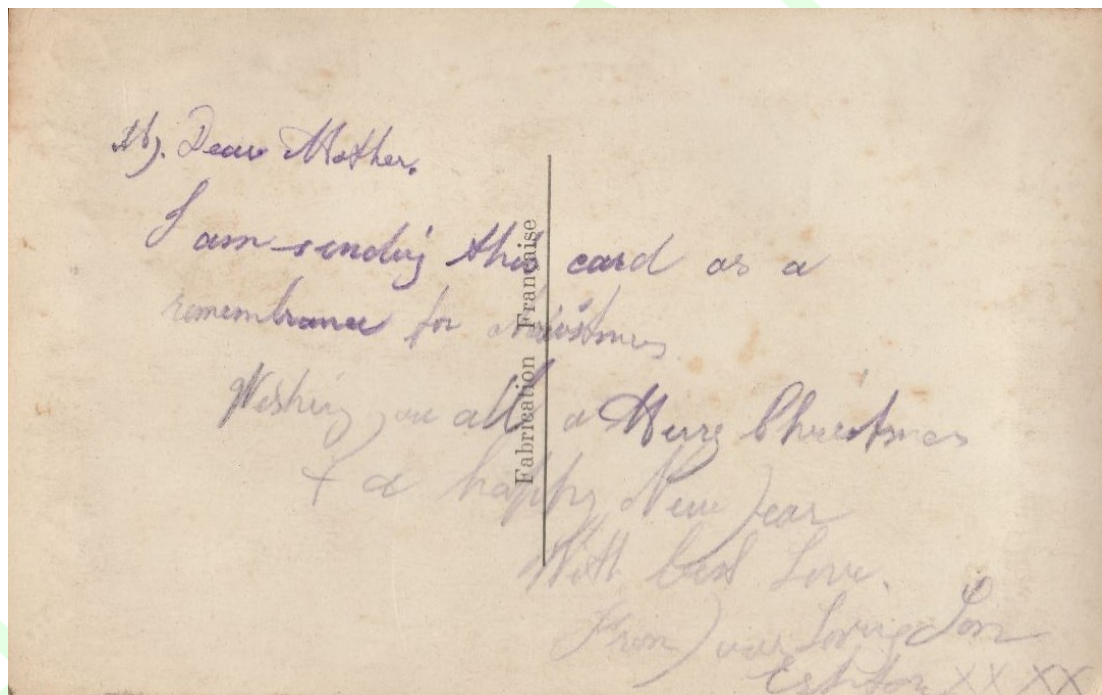 My. Dear Mother.
I am sending this card as a
remembrance for christmas
Wishing you all a Merry Christmas
+ a happy New Year
With best Love.
From your Loving Son
XX XX
Fabrication Française